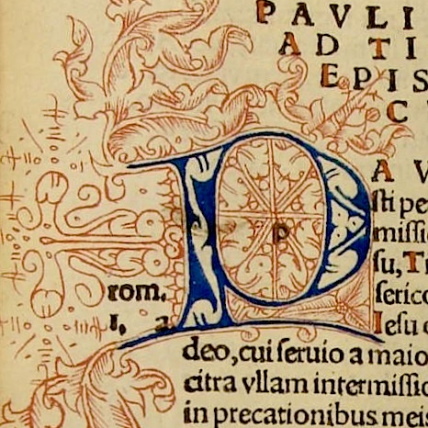 PAVLI
AD TI
EPIS
C
P AV
p
sti pe
missi
su, T
rom. serico
1, a Iesu
deo, cui seruio a maio
citra vllam intermissio
in precationibus meis